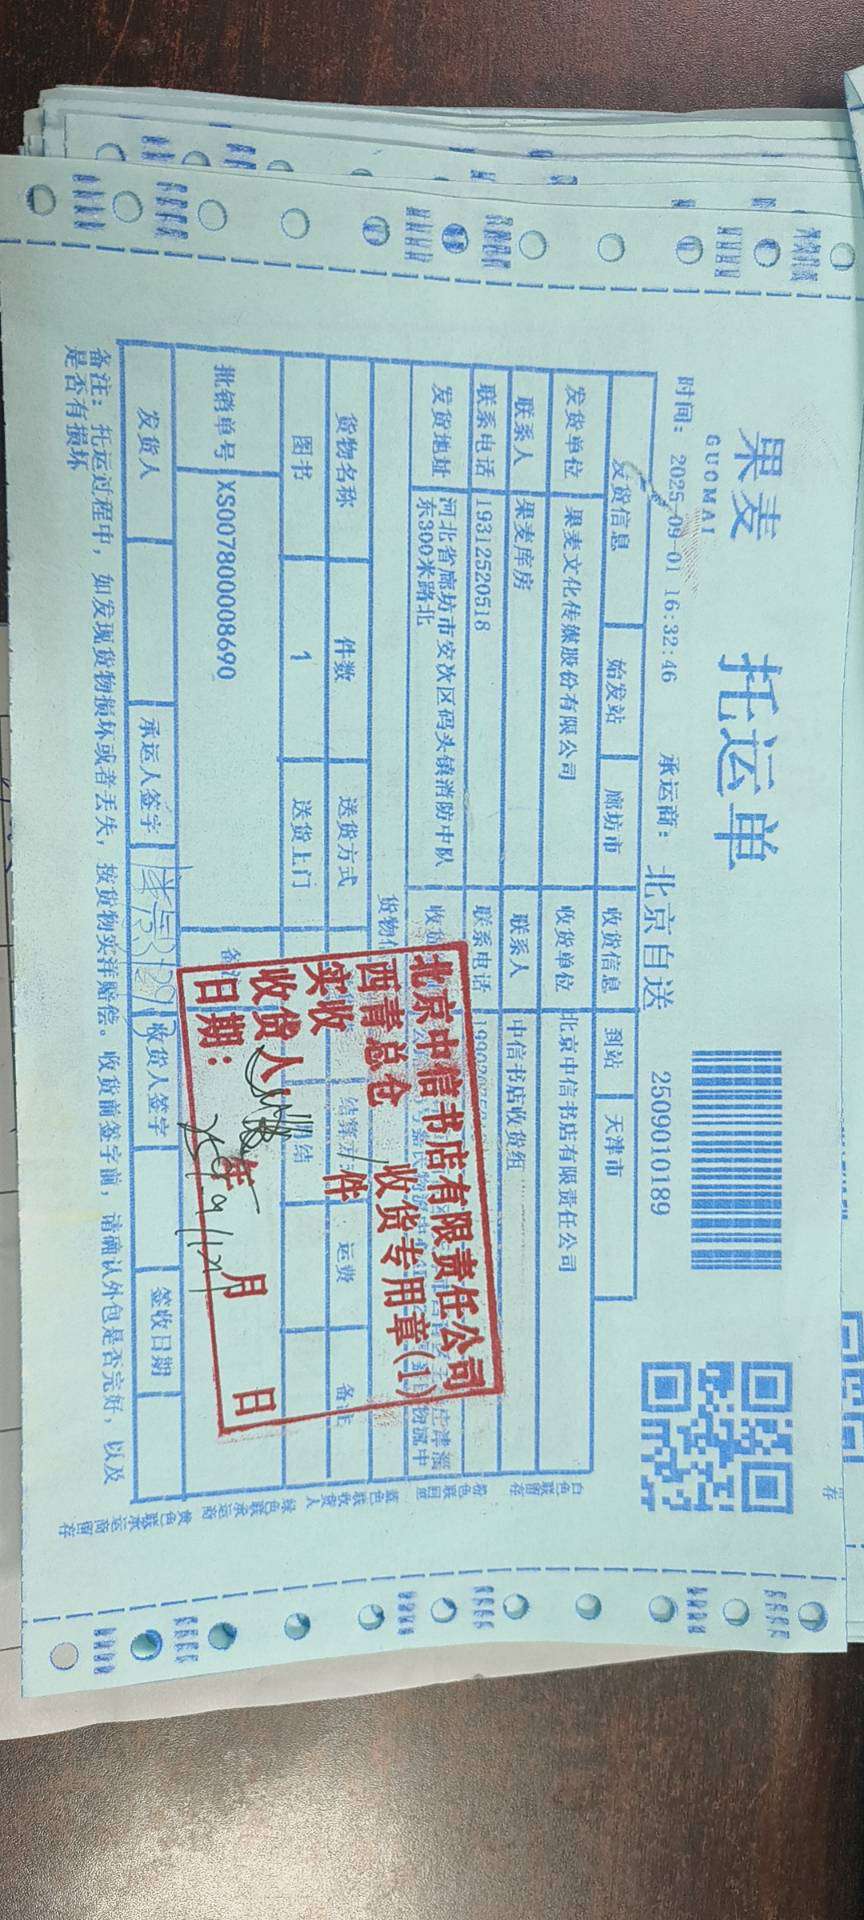 果麦
GUOMAI
托运单
2509010189
时间: 2025-09-01 16:32:46 承运商: 北京自送
发货信息 始发站 廊坊市 收货信息 到站 天津市
发货单位 果麦文化传媒股份有限公司 收货单位 北京中信书店有限责任公司
联系人 果麦库房 联系人 中信书店收货组
联系电话 19312520518 联系电话
发货地址 河北省廊坊市安次区码头镇消防中队
东300米路北
货物名称 件数 送货方式 运费 备注
图书 1 送货上门
批销单号 XS007800008690
发货人 承运人签字 收货人签字 签收日期
备注: 托运过程中, 如发现货物损坏或者丢失, 按货物实洋赔偿。收货前签字前, 请确认外包是否完好, 以及
是否有损坏
北京中信书店有限责任公司
西青总仓 收货专用章(1)
实收 1 件
收货人:
日期: 年 月 日
白色联留存 粉色联回签 蓝色联收货人 绿色联承运商 黄色联承运商留存
存